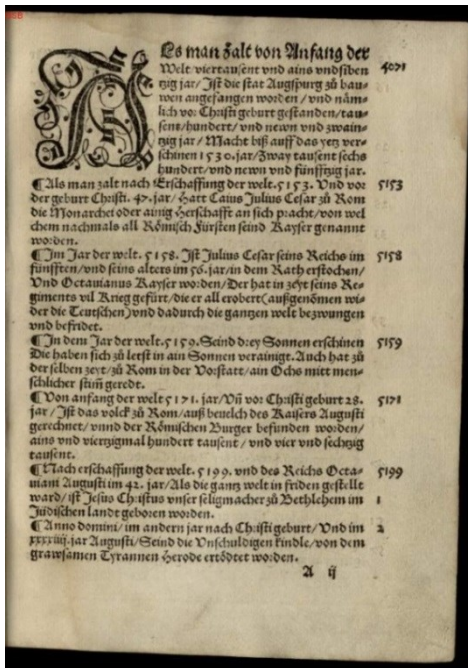 Als man zalt von Anfang der
Welt/viertausent vnd ains vndsiben 4071
tzig jar/ Ist die stat Augspurg zů bau-
wen angefangen worden/vnd näm-
lich vor Christi geburt gestanden/tau-
sent/hundert/vnd newn vnd zwain-
tzig jar/ Macht biß auff das yetz ver-
schinen 1530.jar/Zway tausent sechs
hundert/vnd newn vnd fünfftzig jar.
¶Als man zalt nach Erschaffung der welt.5153. Vnd vor 5153
der geburt Christi. 47.jar/ Hatt Caius Julius Cesar zů Rom
die Monarchei oder ainig Herschafft an sich pracht/von wel
chem nachmals all Römisch Fürsten seind Kayser genannt
worden.
¶Im Jar der welt.5158. Ist Julius Cesar seins Reichs im 5158
fünfften/vnd seins alters im 56.jar/in dem Rath erstochen/
Vnd Octauianus Kayser worden/Der hat in zeyt seins Re-
giments vil Krieg gefürt/die er all erobert(außgenōmen wi-
der die Teutschen)vnd dadurch die gantzen welt bezwungen
vnd befridet.
¶In dem Jar der welt.5159.Seind drey Sonnen erschinen 5159
Die haben sich zů letst in ain Sonnen verainigt. Auch hat zů
der selben zeyt/zů Rom in der Vorstatt/ain Ochs mitt men-
schlicher stim̄ geredt.
¶Von anfang der welt 5171. jar/Vn̄ vor Christi geburt 28. 5171
jar/Ist das volck zů Rom/auß beuelch des Kaisers Augusti
gerechnet/vnnd der Römischen Burger befunden worden/
ains vnd viertzigmal hundert tausent/vnd vier vnd sechtzig
tausent.
¶Nach erschaffung der welt. 5199. vnd des Reichs Octa- 5199
uiani Augusti im 42. jar/Als die gantz welt in friden gestellt
ward/ist Jesus Christus vnser seligmacher zů Bethlehem im 1
Jüdischen landt geboren worden.
¶Anno domini/im andern jar nach Christi geburt/Vnd im 2
xxxxiiij.jar Augusti/Seind die Vnschuldigen kindle/von dem
grawsamen Tyrannen Herode ertödtet worden.
A ij